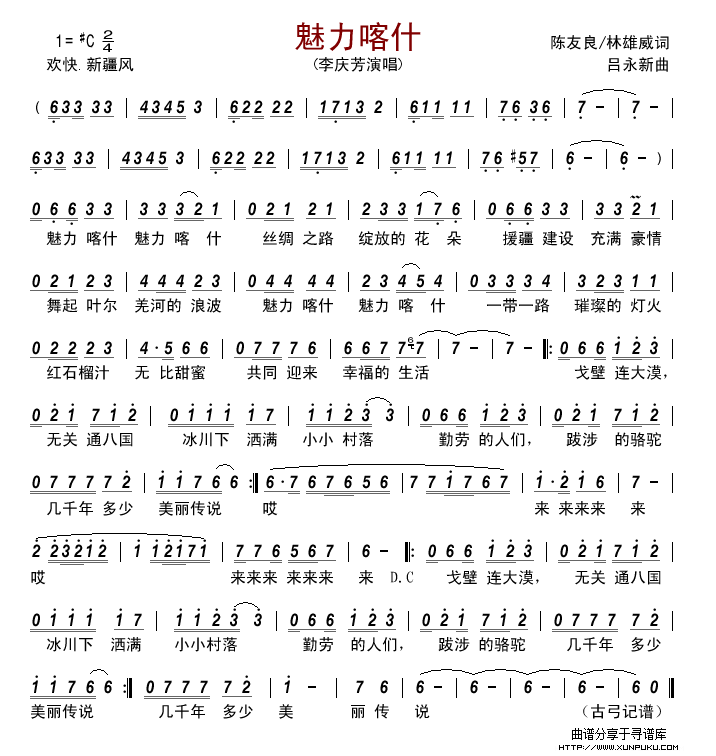 魅力喀什
1= #C 2/4
陈友良/林雄威词
欢快.新疆风
(李庆芳演唱)
吕永新曲
( 633 33 | 4345 3 | 622 22 | 1713 2 | 611 11 | 76 36 | 7 - | 7 - |
633 33 | 4345 3 | 622 22 | 1713 2 | 611 11 | 76 #57 | 6 - | 6 - )
066 33 | 33 321 | 021 21 | 233 176 | 066 33 | 33 21
魅力 喀什 魅力 喀 什 丝绸 之路 绽放的 花 朵 援疆 建设 充满 豪情
02123 | 444 23 | 044 44 | 23 454 | 0333 4 | 323 21
舞起 叶尔 羌河的 浪波 魅力 喀什 魅力 喀 什 一带一路 璀璨的 灯火
022 23 | 4·566 | 0777 6 | 667 7 67 | 7 - | 7 - ‖: 066 123
红石榴汁 无 比甜蜜 共同 迎来 幸福的 生活 戈壁 连大漠,
021 712 | 0111 17 | 1123 3 | 066 123 | 021 712
无关 通八国 冰川下 洒满 小小 村落 勤劳 的人们, 跋涉 的骆驼
0777 72 | 1176 6 :‖ 6·7 67656 | 77 1767 | 1·2 16 | 7 -
几千年 多少 美丽传说 哎 来 来来来 来
2 23212 | 1 12171 | 776 567 | 6 - ‖: 066 123 | 021 712
哎 来来来 来来来 来 D.C 戈壁 连大漠, 无关 通八国
0111 17 | 1123 3 | 066 123 | 021 712 | 0777 72
冰川下 洒满 小小村落 勤劳 的人们, 跋涉 的骆驼 几千年 多少
1176 6 :‖ 0777 72 | 1 - | 7 7 | 6 - | 6 - | 6 - | 6 0 ‖
美丽传说 几千年 多少 美 丽 传 说 (古弓记谱)
曲谱分享于寻谱库
WWW.XUNPUKU.COM